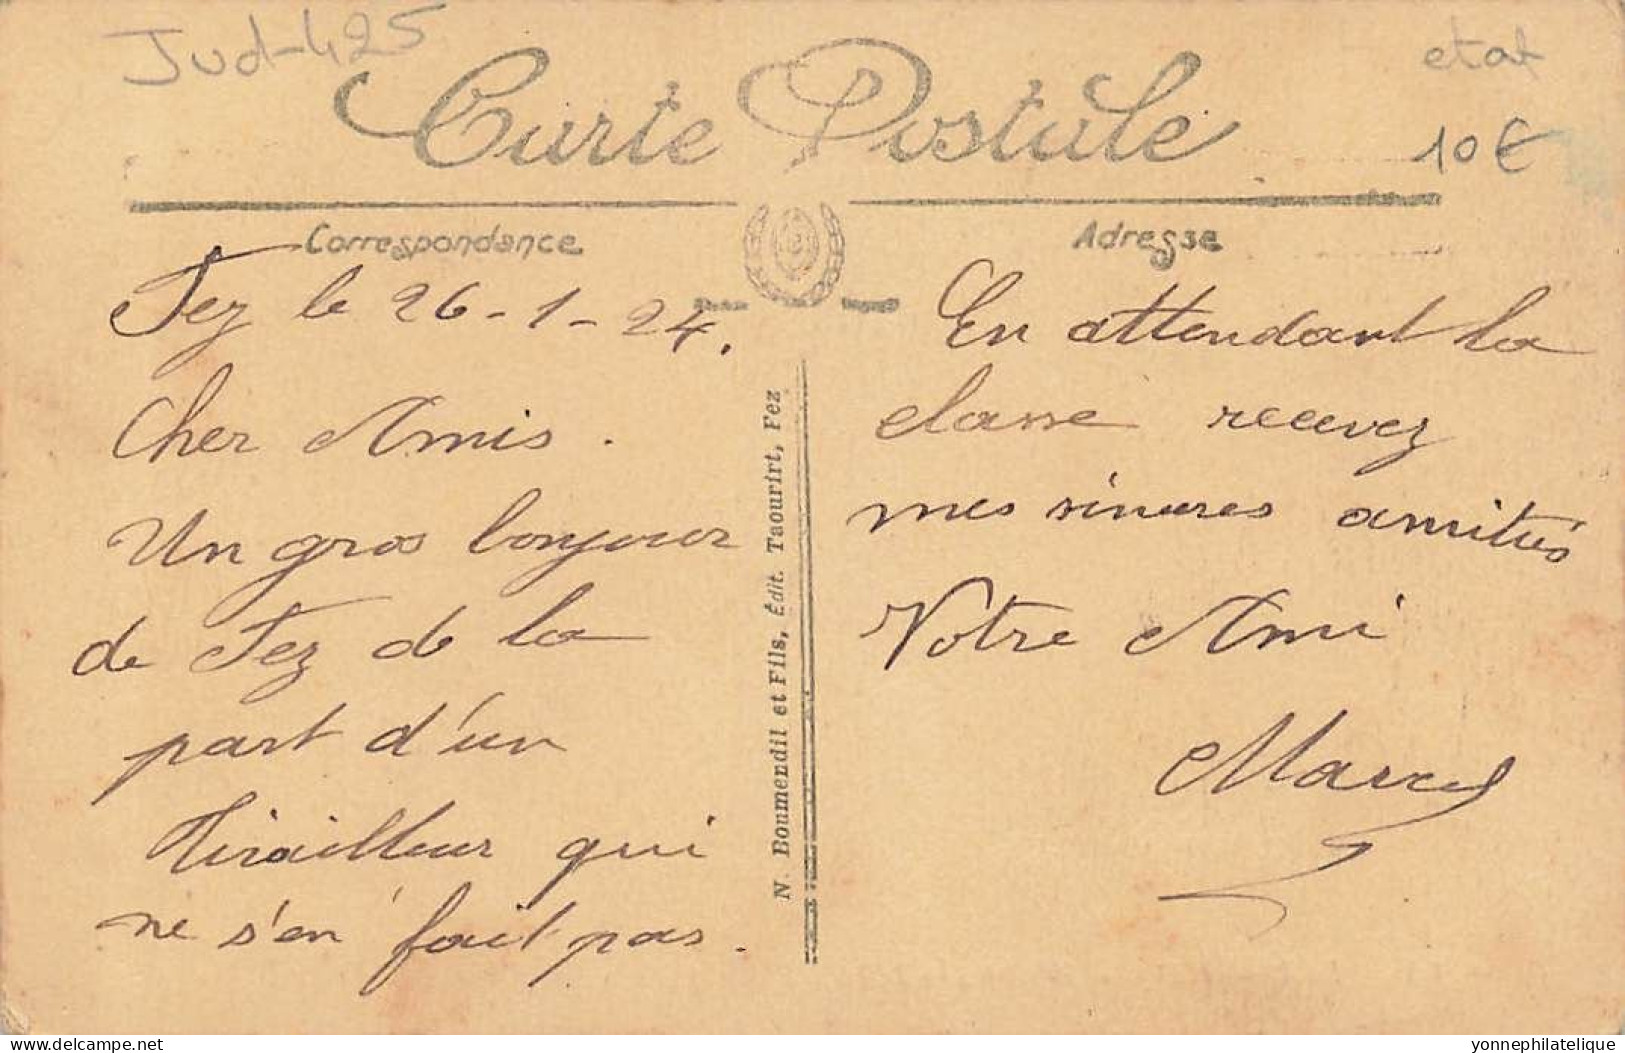 Jud-425
etat
10€
Carte Postale
Correspondance
Adresse
Fez le 26-1-24.
Cher Amis.
Un gros bonjour
de Fez de la
part d'un
tirailleur qui
ne s'en fait pas.
N. Boumendil et Fils, Édit. Taourirt, Fez
En attendant la
classe recevez
mes sinceres amitiés
Votre Ami
Marcel
Delcampe.net
yonnephilatelique